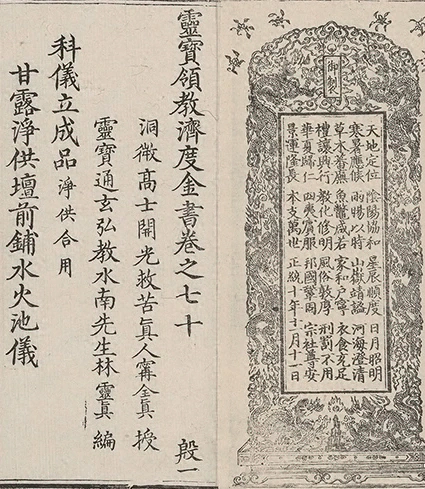 御製
天地定位 陰陽協和 星辰順度 日月昭明
寒暑應候 雨暘以時 山嶽靖謐 河海澄清
草木蕃廡 魚鱉咸若 家和戶寧 衣食充足
禮讓興行 教化修明 風俗敦厚 刑罰不用
華夏歸仁 四夷賓服 邦國鞏固 宗社尊安
景運隆長 本支萬世 正統十年十一月十一日
靈寶領教濟度金書卷之七十 殷一
洞微高士開光救苦真人甯全真 授
靈寶通玄弘教水南先生林靈真 編
科儀立成品 淨供合用
甘露淨供壇前鋪水火池儀